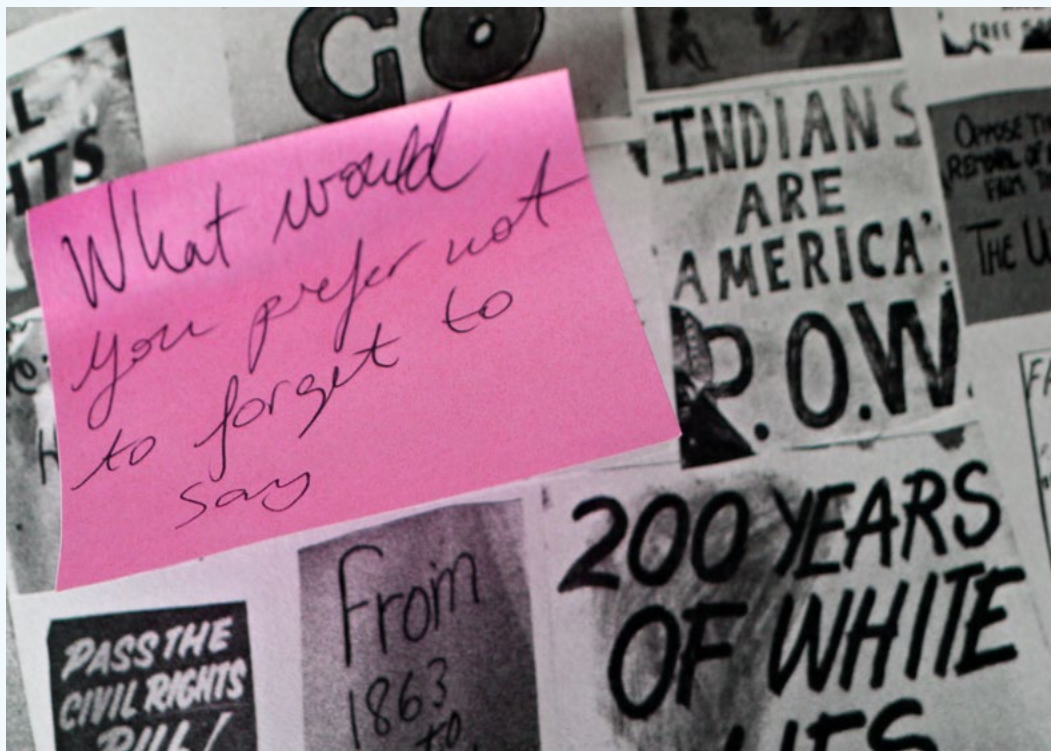 GO
What would
you prefer not
to forget to
say
INDIANS
ARE
AMERICA'.
P.O.W.
THE
200 YEARS
OF WHITE
LIES
From
1863
to
PASS THE
CIVIL RIGHTS
BILL!